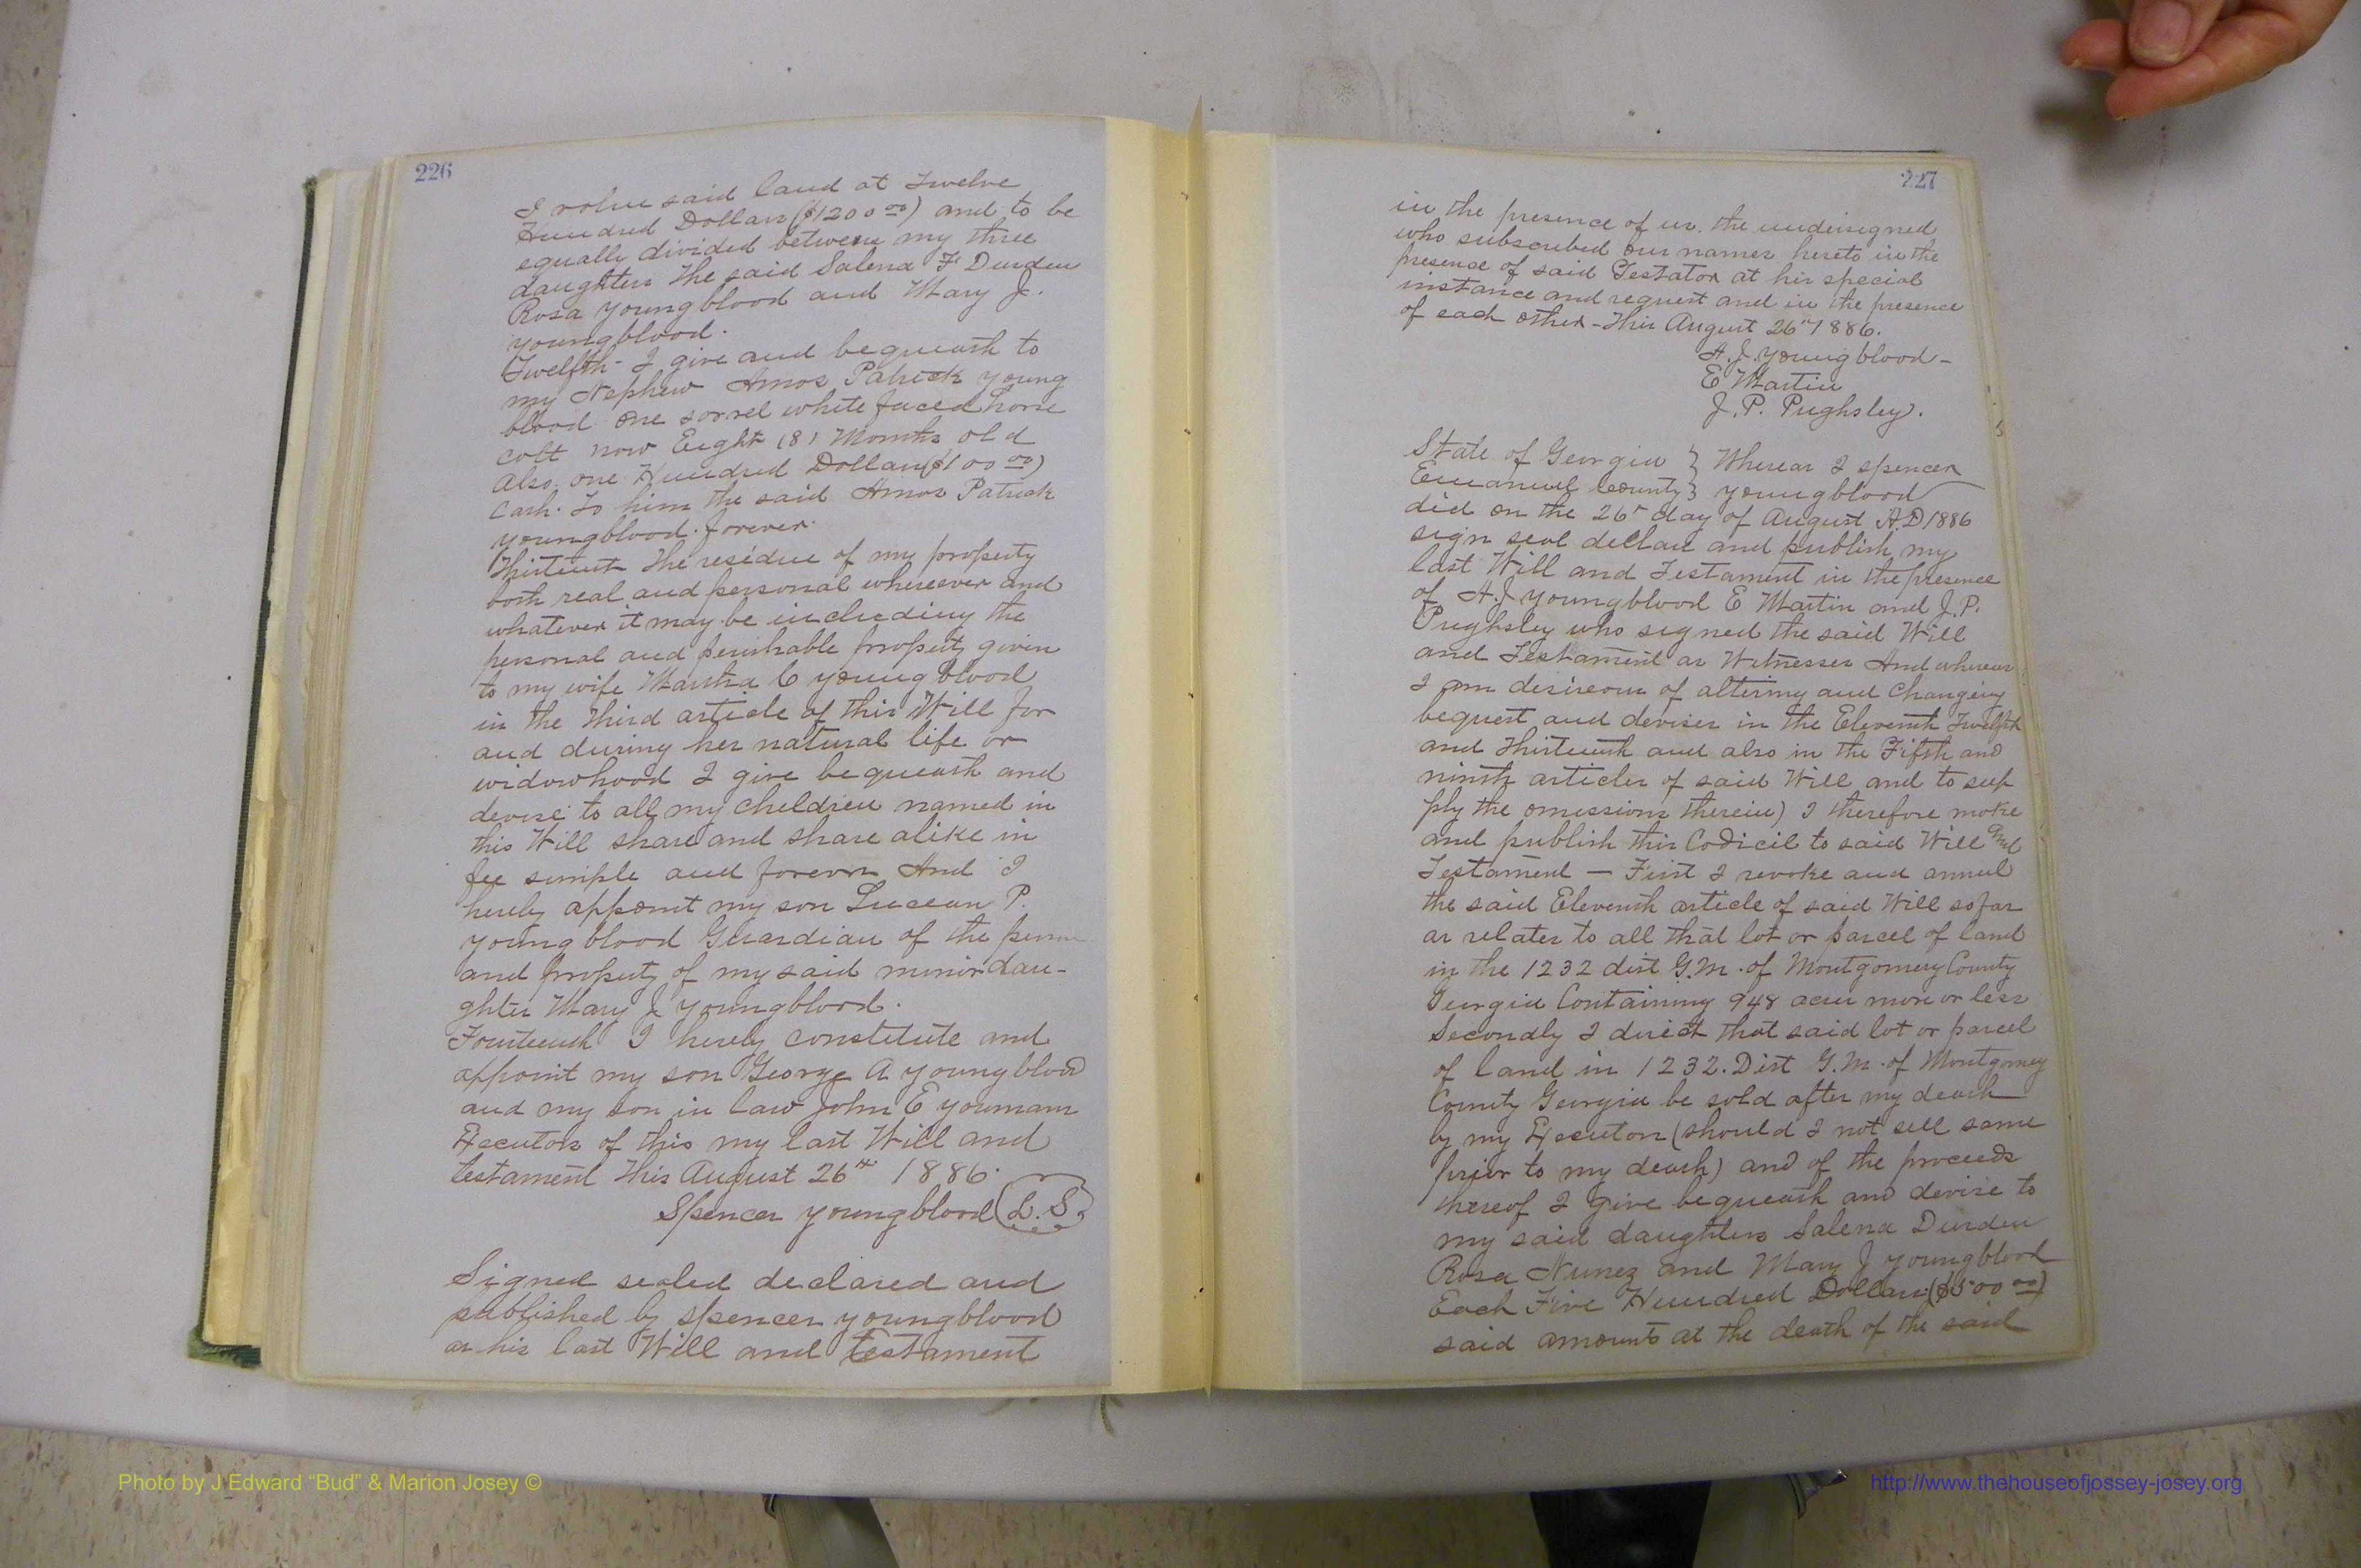 226
I value said land at Twelve
Hundred Dollars ($1200 00) and to be
equally divided between my three
daughters the said Salena F Durden
Rosa Youngblood and Mary J.
youngblood.
Twelfth - I give and bequeath to
my Nephew Amos Patrick young
blood one sorrel white faced horse
colt now Eight (8) Months old
Also one Hundred Dollars ($100 00)
Cash. To him the said Amos Patrick
youngblood. forever.
Thirteenth The residue of my property
both real and personal wherever and
whatever it may be including the
personal and perishable property given
to my wife Martha C young blood
in the third article of this Will for
and during her natural life or
widowhood I give bequeath and
devise to all my children named in
this Will share and share alike in
fee simple and forever And I
hereby appoint my son Lucean P.
young blood Guardian of the person
and property of my said minor dau-
ghter Mary J youngblood.
Fourteenth I hereby constitute and
appoint my son George A youngblood
and my son in law John E youmans
Executors of this my last Will and
testament This August 26th 1886.
Spencer youngblood (L.S.)
Signed sealed declared and
published by spencer youngblood
as his last Will and testament
227
in the presence of us. the undersigned
who subscribed our names hereto in the
presence of said Testator at his special
instance and request and in the presence
of each other - This August 26th 1886.
A. J. youngblood -
E Martin
J. P. Pughsley.
State of Georgia } Whereas I spencer
Emanuel County } youngblood
did on the 26th day of August A.D 1886
sign seal declare and publish my
last Will and Testament in the presence
of A.J youngblood E Martin and J.P.
Pughsley who signed the said Will
and Testament as Witnesses And whereas
I am desireous of altering and Changing
bequest and devises in the Eleventh Twelfth
and Thirteenth and also in the Fifth and
ninth articles of said Will and to sup
ply the omissions therein) I therefore make
and publish this Codicil to said Will and
Testament — First I revoke and annul
the said Eleventh article of said Will so far
as relates to all that lot or parcel of land
in the 1232 dist G.M. of Montgomery County
Georgia Containing 948 acres more or less
Secondly I direct that said lot or parcel
of land in 1232. Dist G.M. of Montgomery
County Georgia be sold after my death
by my Executors (should I not sell same
prior to my death) and of the proceeds
thereof I give bequeath and devise to
my said daughters Salena Durden
Rosa Nunez and Mary J youngblood
Each Five Hundred Dollars ($500 00)
said amounts at the death of the said
Photo by J Edward “Bud” & Marion Josey ©
http://www.thehouseofjossey-josey.org